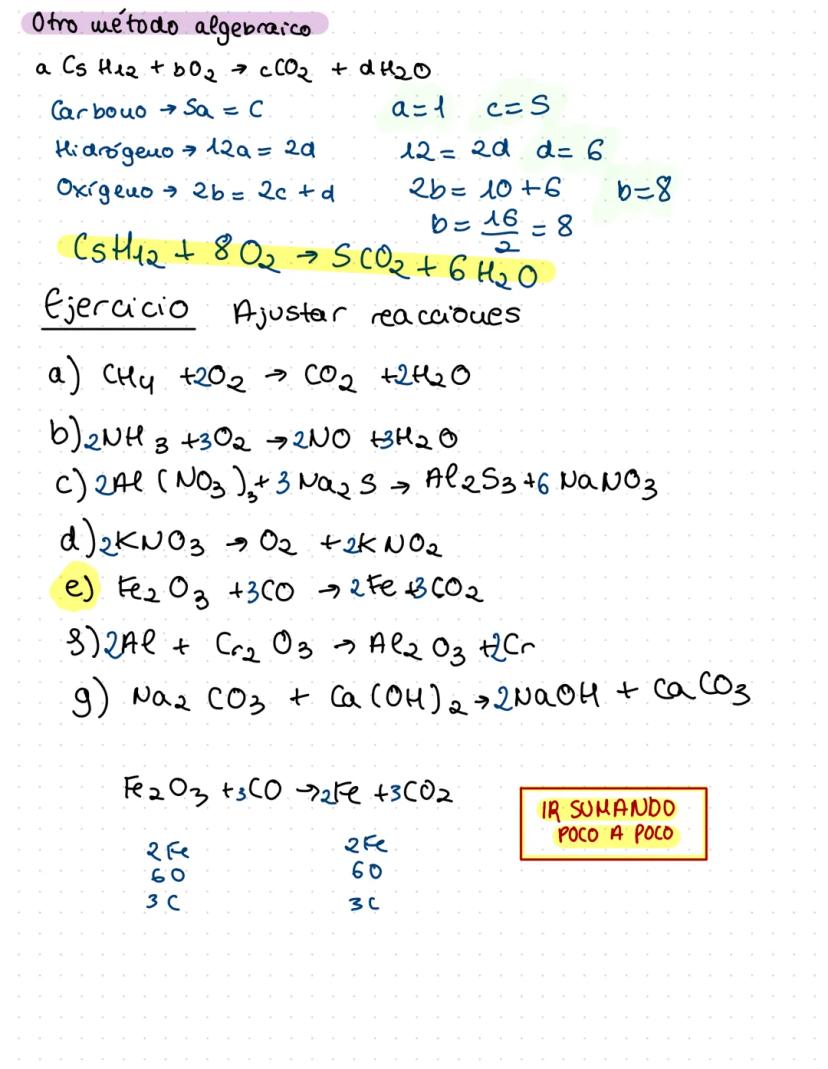 Otro método algebraico
a C5 H12 + bO2 → cCO2 + dH2O
Carbono → 5a = C a=1 c=5
Hidrógeno → 12a = 2d 12 = 2d d= 6
Oxígeno → 2b = 2c + d 2b= 10 +6 b=8
b= 16/2 = 8
C5H12 + 8 O2 → 5 CO2 + 6 H2O
Ejercicio Ajustar reacciones
a) CH4 +2O2 → CO2 +2H2O
b) 2NH3 +3O2 → 2NO +3H2O
c) 2Al (NO3)3 + 3 Na2 S → Al2S3 +6 NaNO3
d) 2KNO3 → O2 +2K NO2
e) Fe2 O3 +3CO → 2Fe +3CO2
f) 2Al + Cr2 O3 → Al2 O3 +2Cr
g) Na2 CO3 + Ca(OH)2 → 2NaOH + CaCO3
Fe2O3 +3CO → 2Fe +3CO2
IR SUMANDO
POCO A POCO
2 Fe 2 Fe
6 O 6 O
3 C 3 C